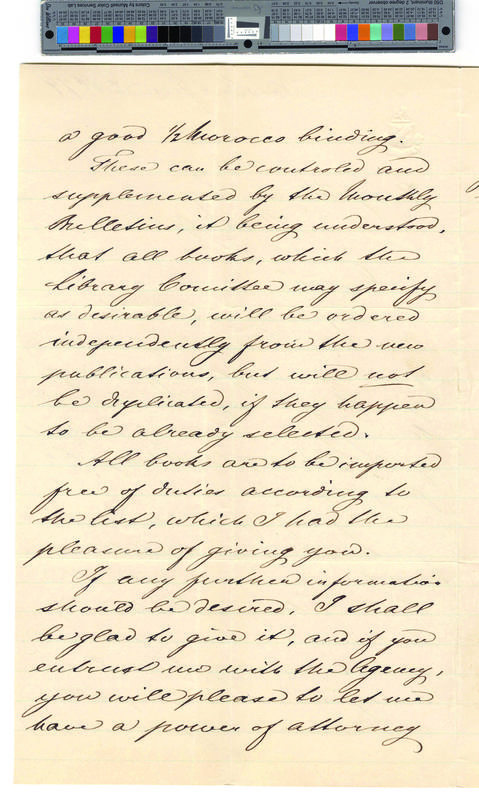 a good 1/2 Morocco binding.
These can be controled and
supplemented by the Monthly
Bulletins, it being understood,
that all books, which the
Library Comittee may specify
as desirable, will be ordered
independently from the new
publications, but will not
be duplicated, if they happen
to be already selected.
All books are to be imported
free of duties according to
the list, which I had the
pleasure of giving you.
If any further information
should be desired, I shall
be glad to give it, and if you
entrust me with the Agency,
you will please to let me
have a power of attorney